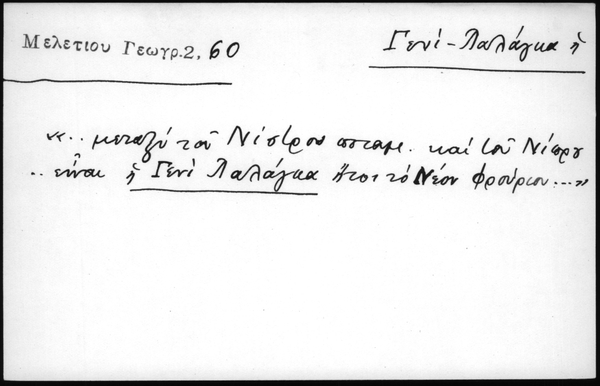 Μελετιου Γεωγρ.2, 60
Γενί-Παλάγκα ἡ
«.. μεταξὺ τοῦ Νίστρου ποταμ. καὶ τοῦ Νίπρου
.. εἶναι ἡ Γενὶ Παλάγκα ἤτοι τὸ Νέον φρούριον...»